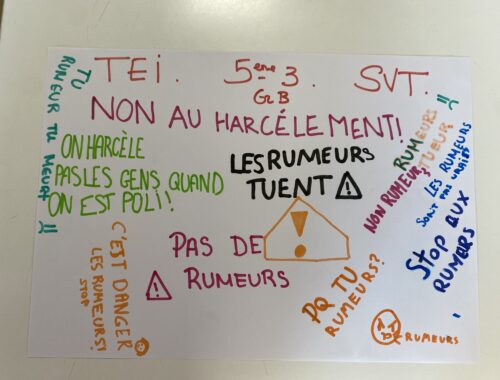 TEI. 5ème 3. SVT.
Gr B
NON AU HARCÉLEMENT!
TU
RUMEUR TU MEURT !!
ON HARCÈLE
PAS LES GENS QUAND
ON EST POLI!
LES RUMEURS
TUENT !
RUMEURS
TUEUR
NON RUMEURS
LES RUMEURS
SONT PAS
STOP AUX
RUMERS
!
PAS DE
! RUMEURS
C'EST DANGER
LES RUMEURS!
STOP
PQ TU
RUMEURS?
RUMEURS